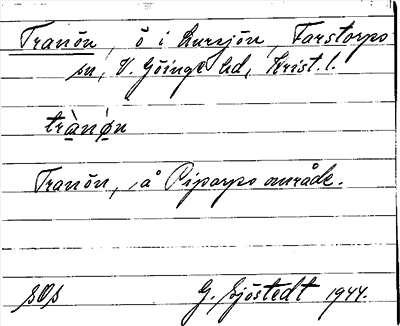 Tranön, ö i Lursjön, Farstorps
sn, V. Göinge hd, Krist. l.
trànǿn
Tranön, å Piparps område.
G. Sjöstedt 1944.